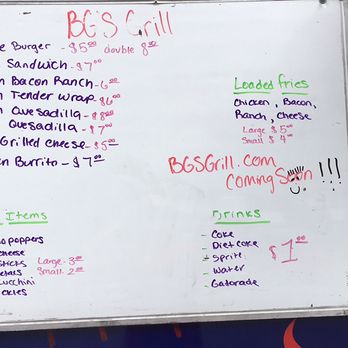 BG'S Grill
Burger - $5.00 double 8.00
Sandwich - $7.00
Bacon Ranch - 6.00
Tender wrap - $6.00
Quesadilla - $8.00
Quesadilla - $7.00
Grilled cheese - $5.00
Burrito - $7.00
Loaded fries
Chicken, Bacon,
Ranch, cheese
Large $5.00
Small $4.00
BGSGrill.com
Coming Soon !!!
Items
poppers
cheese
sticks
Large - 3.00
Small - 2.00
Drinks
- Coke
- Diet coke
- Sprite
- Water
- Gatorade
$1.00